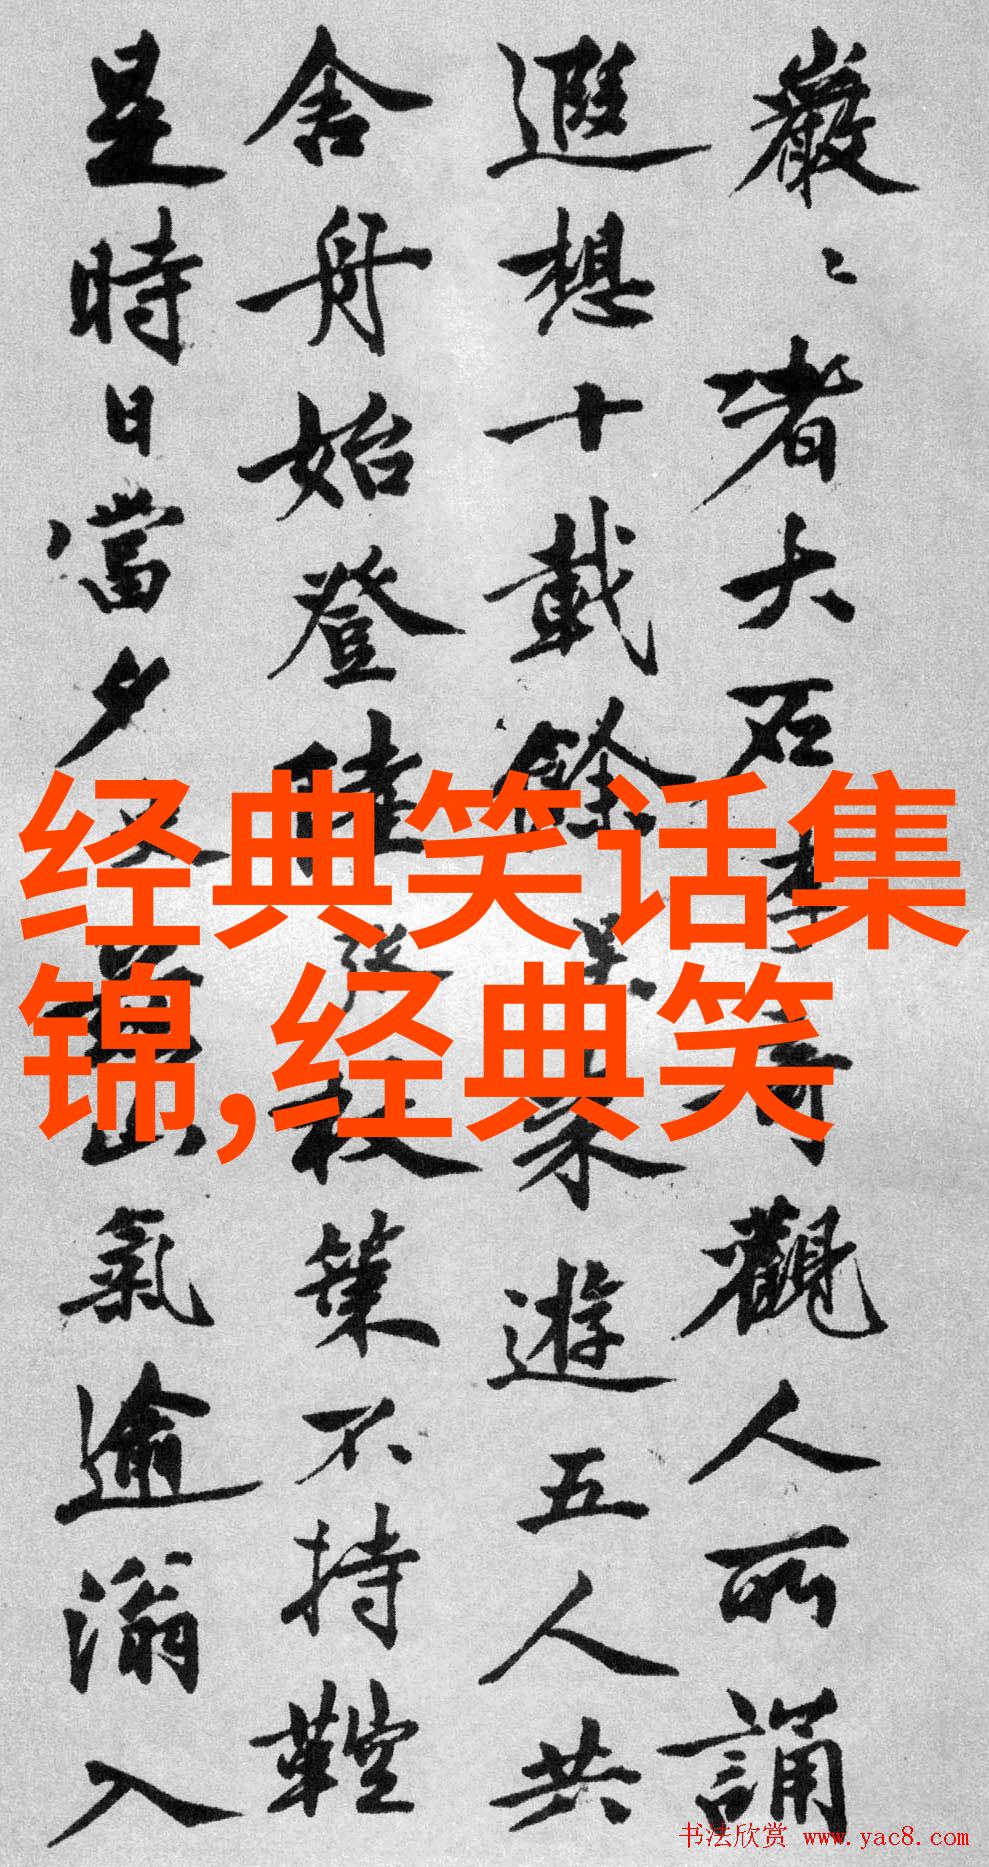 巖〻者大石觀人所誦
遐想十載餘遊五人共
舍舟始登陸杖策不持鞚
是時日當夕山氣逾滃入
经典笑话集
锦,经典笑
书法欣赏 www.yac8.com